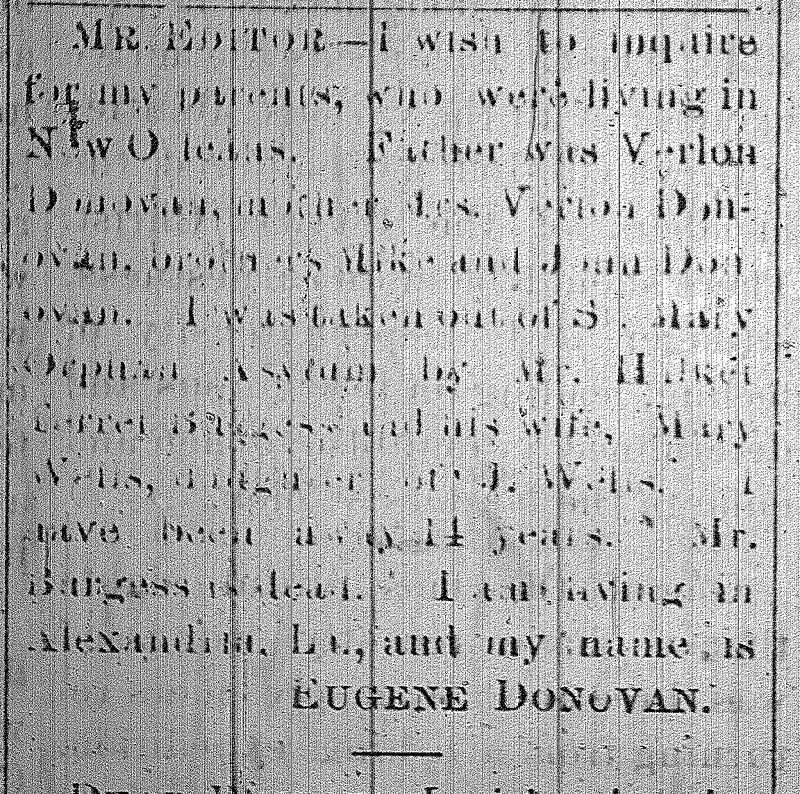 MR. EDITOR—I wish to inquire
for my parents, who were living in
New Orleans. Father was Verlon
Donovan, mother Mrs. Verlon Don-
ovan, brothers Mike and John Don-
ovan. I was taken out of St. Mary
Orphan Asylum by Mr.
Burgess and his wife, Mary
Wells, daughter of J. Wells. I
have been away 14 years. Mr.
Burgess is dead. I am living in
Alexandria, La., and my name is
EUGENE DONOVAN.